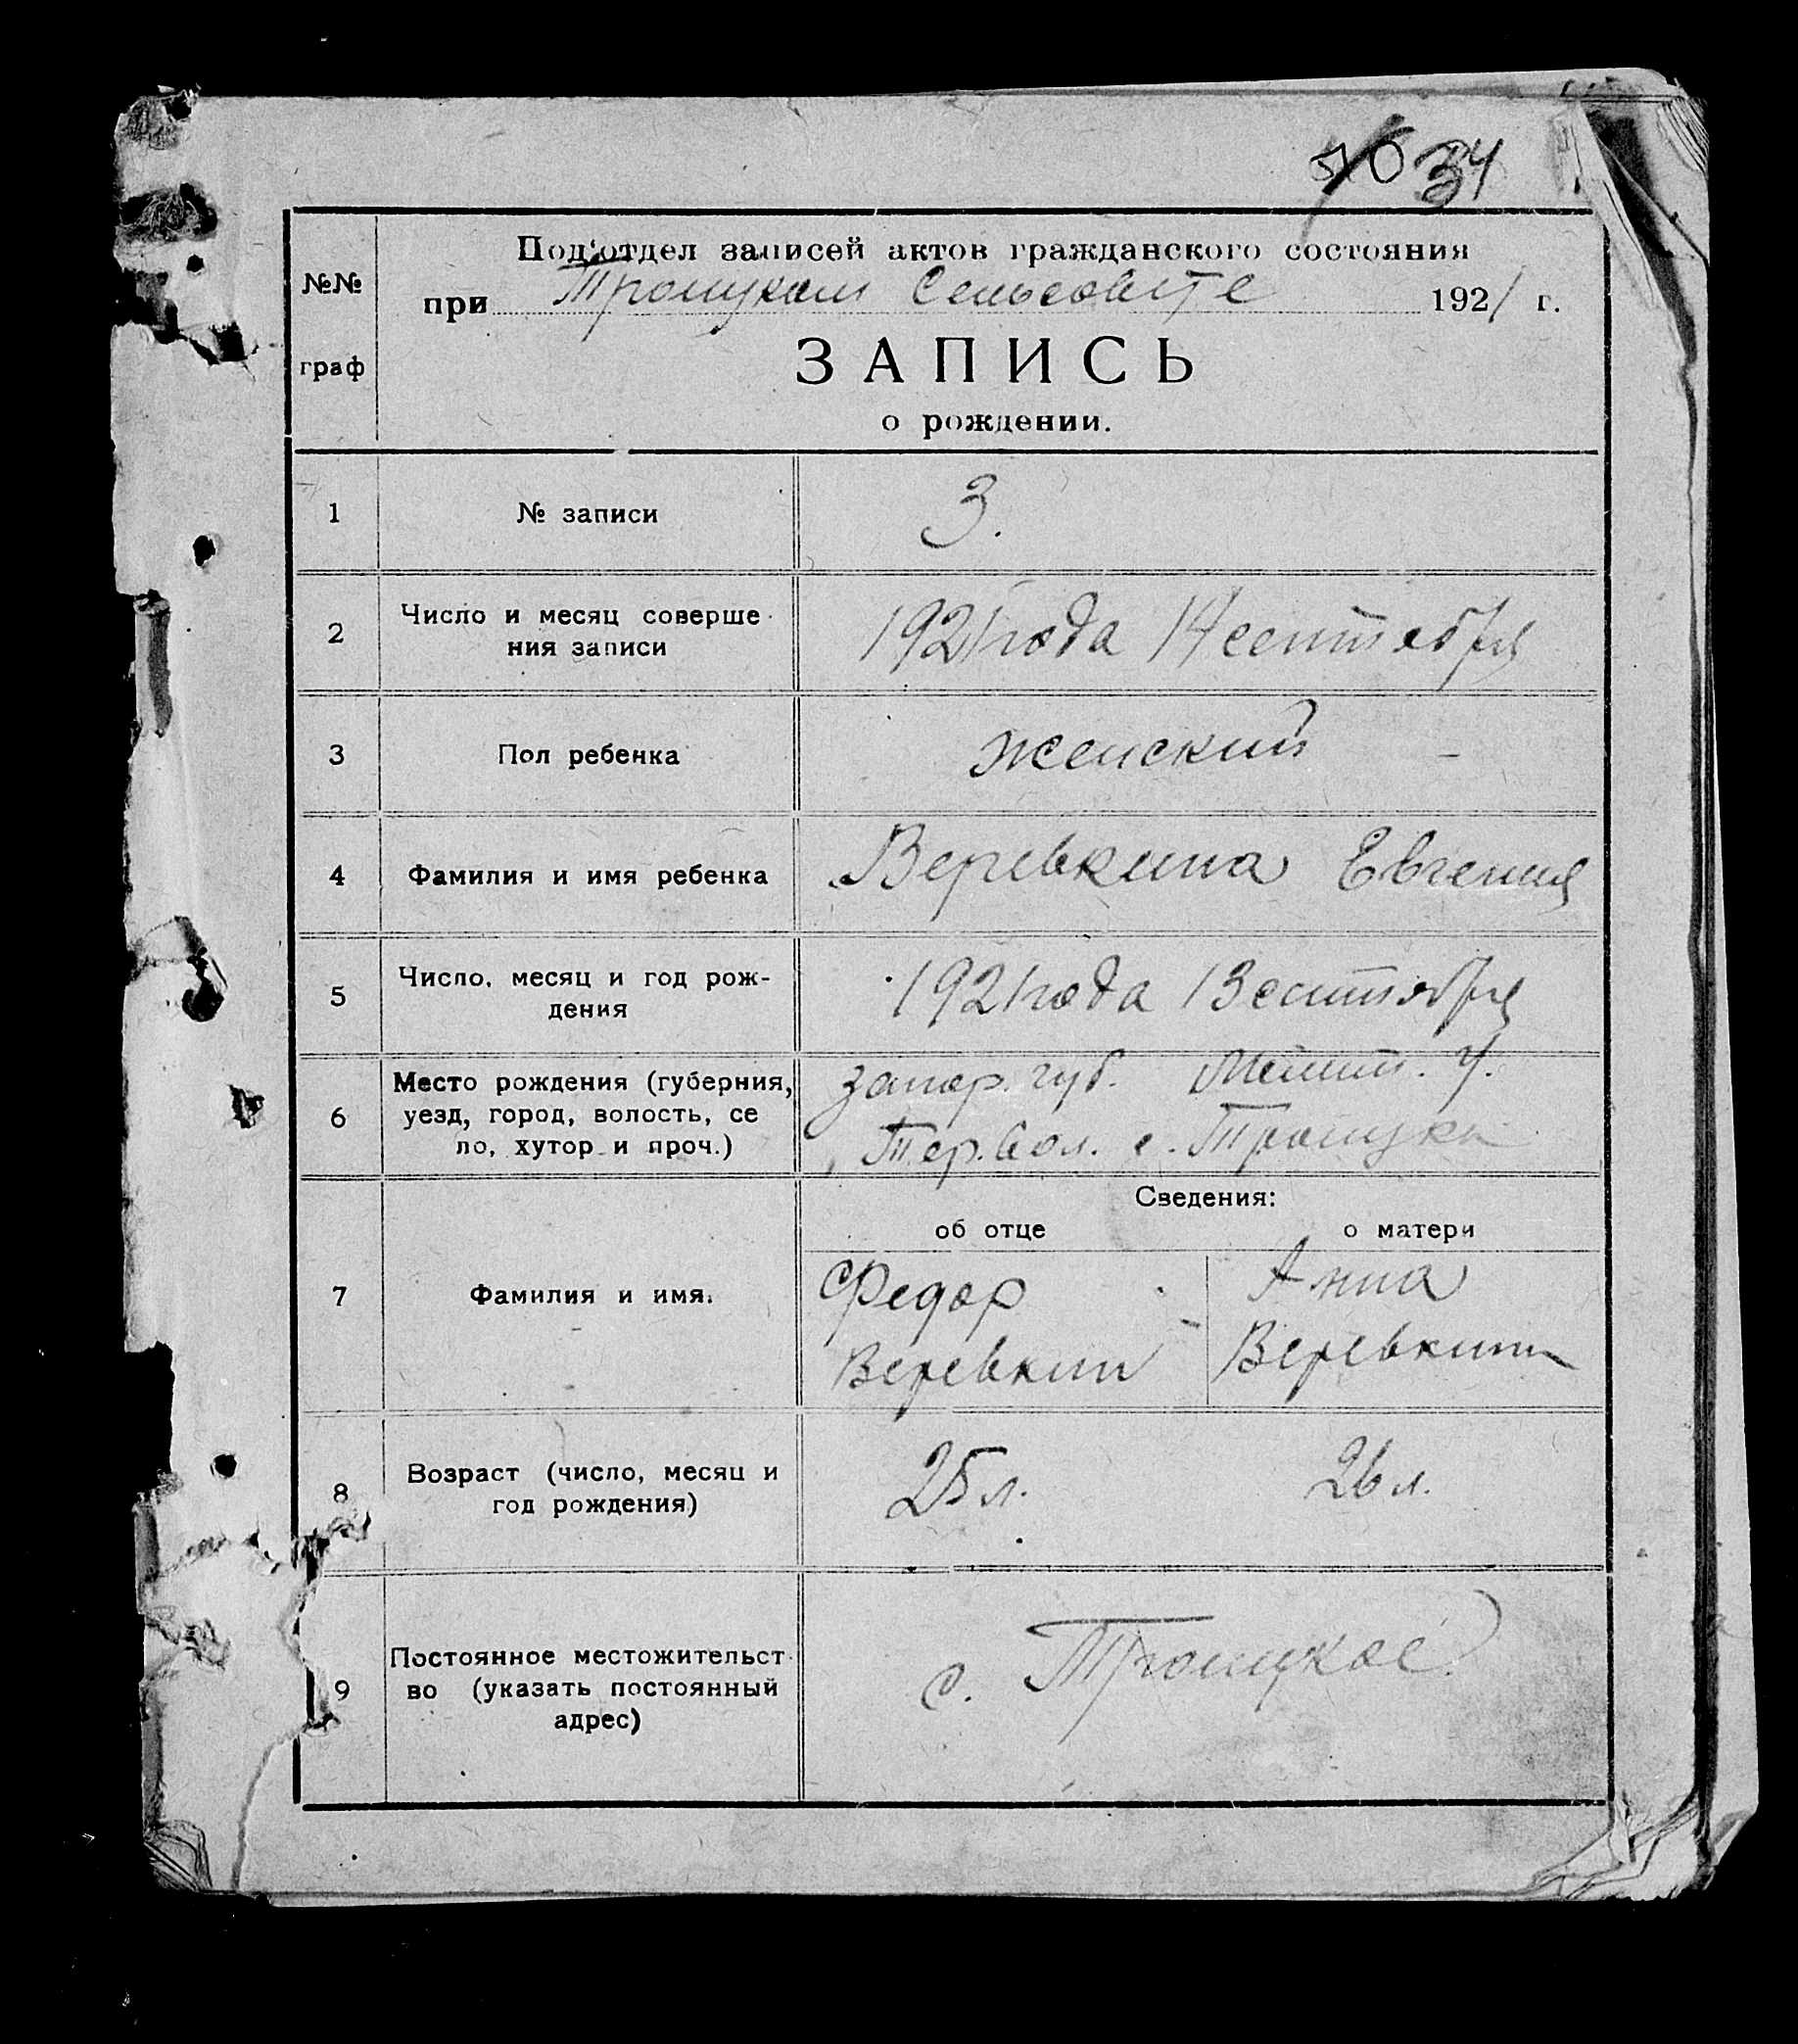 34
Под'отдел записей актов гражданского состояния
№№
при Троицком Сельсовете 1921 г.
граф
ЗАПИСЬ
о рождении.
1 № записи 3.
2 Число и месяц соверше
ния записи
1921 года 14 сентября
3 Пол ребенка женский
4 Фамилия и имя ребенка Веревкина Евгения
5 Число, месяц и год рож-
дения
1921 года 13 сентября
6 Место рождения (губерния,
уезд, город, волость, се
ло, хутор и проч.)
Запор. губ. Мелит. у.
Тер. вол. с. Троицк
Сведения:
об отце о матери
7 Фамилия и имя.
Федор
Веревкин
Анна
Веревкин
8 Возраст (число, месяц и
год рождения)
25 л. 26 л.
9 Постоянное местожительст
во (указать постоянный
адрес)
с. Троицкое